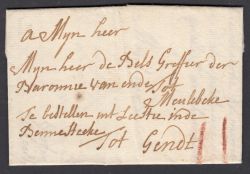 A Mijn heer
Mijn heer de Bels Greffier der
Baronnie van ende tot
Meulebeke
te bestellen ut Leetie inde
Bennesteeke
tot Gendt